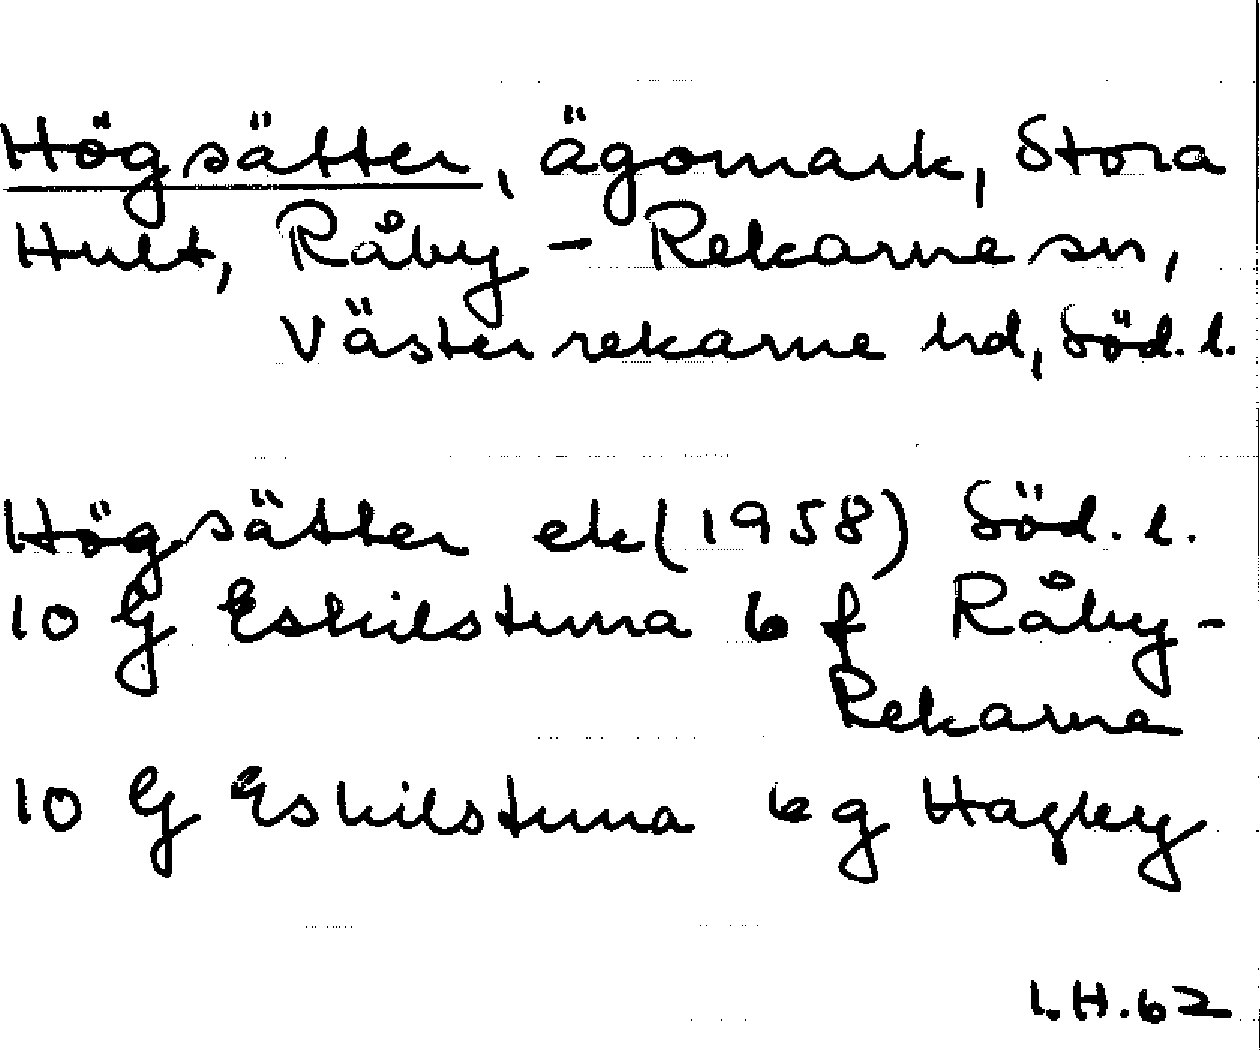 Högsätter, ägomark, Stora
Hult, Råby - Rekarne sn,
Västerrekarne hd, Söd. l.
Högsätter ek (1958) Söd. l.
10 G Eskilstuna 6 f Råby-
Rekarne
10 G Eskilstuna 6 g Hagby
I.H.62